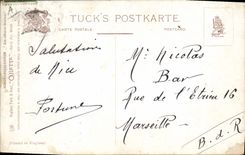 TUCK'S POSTKARTE.
CARTE POSTALE
POSTCARD
Salutations
de Nice
Fortuné
Mr Nicolas
Bar
Rue de l'Etrieu 16
Marseille
B. d. R
Printed in England